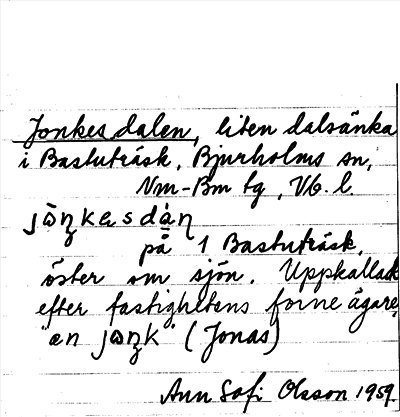 Jonkes dalen, liten dalsänka
i Bastuträsk, Bjurholms sn,
Nm-Bm tg, Vb. l.
jɷ̀ŋkɐsdàṇ
på 1 Bastuträsk,
öster om sjön. Uppkallad
efter fastighetens forne ägare,
"en jɷŋk" (Jonas)
Ann Sofi Olsson 1959.